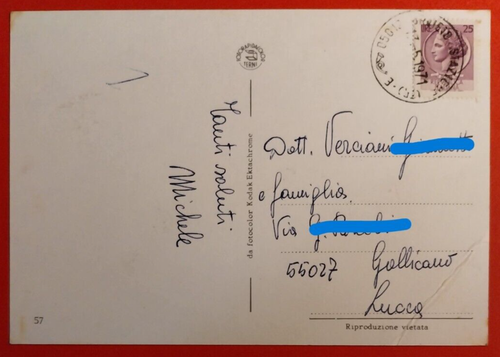 Tanti saluti
Michele
da fotocolor Kodak Ektachrome
57
25
Dott. Verciani
e famiglia
Via
55027 Gallicano
Lucca
Riproduzione vietata